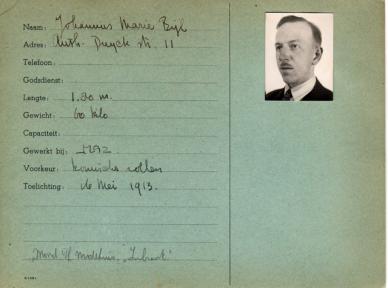 Naam: Johannus Marie Bijl
Adres: Anth. Duyck str. 11
Telefoon:
Godsdienst:
Lengte: 1.80 m.
Gewicht: 60 kilo
Capaciteit:
Gewerkt bij:
Voorkeur: komische rollen
Toelichting: 16 Mei 1913.
"Moord i/h modehuis